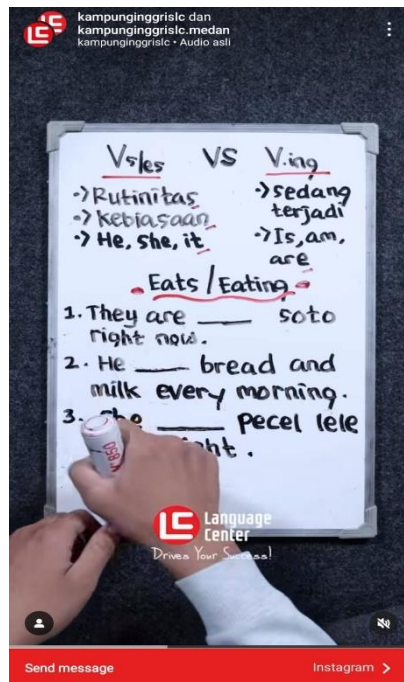 kampunginggrislc dan
kampunginggrislc.medan
kampunginggrislc • Audio asli
Vs/es VS V.ing
-> Rutinitas
-> Kebiasaan
-> He, She, it
-> sedang
terjadi
-> Is, am,
are
Eats / Eating
1. They are ____ soto
right now.
2. He ____ bread and
milk every morning.
3. ____ pecel lele
LC Language
Center
Drives Your Success!
Send message
Instagram >